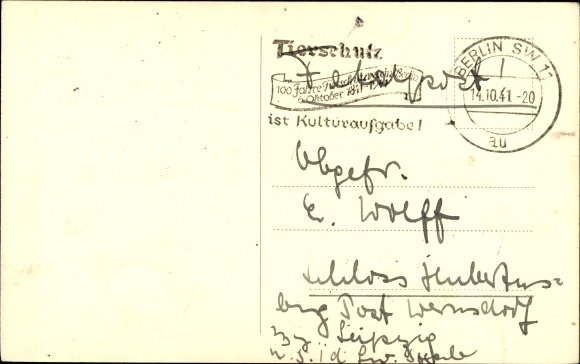 Tierschutz
100 Jahre Tierschutzverein Berlin
Oktober 1841-1941
ist Kulturaufgabe!
BERLIN SW 11
14.10.41.-20
au
Feldpost
Obgefr.
E. Wolff
Schloss Hubertus-
burg Post Wermsdorf
Leipzig